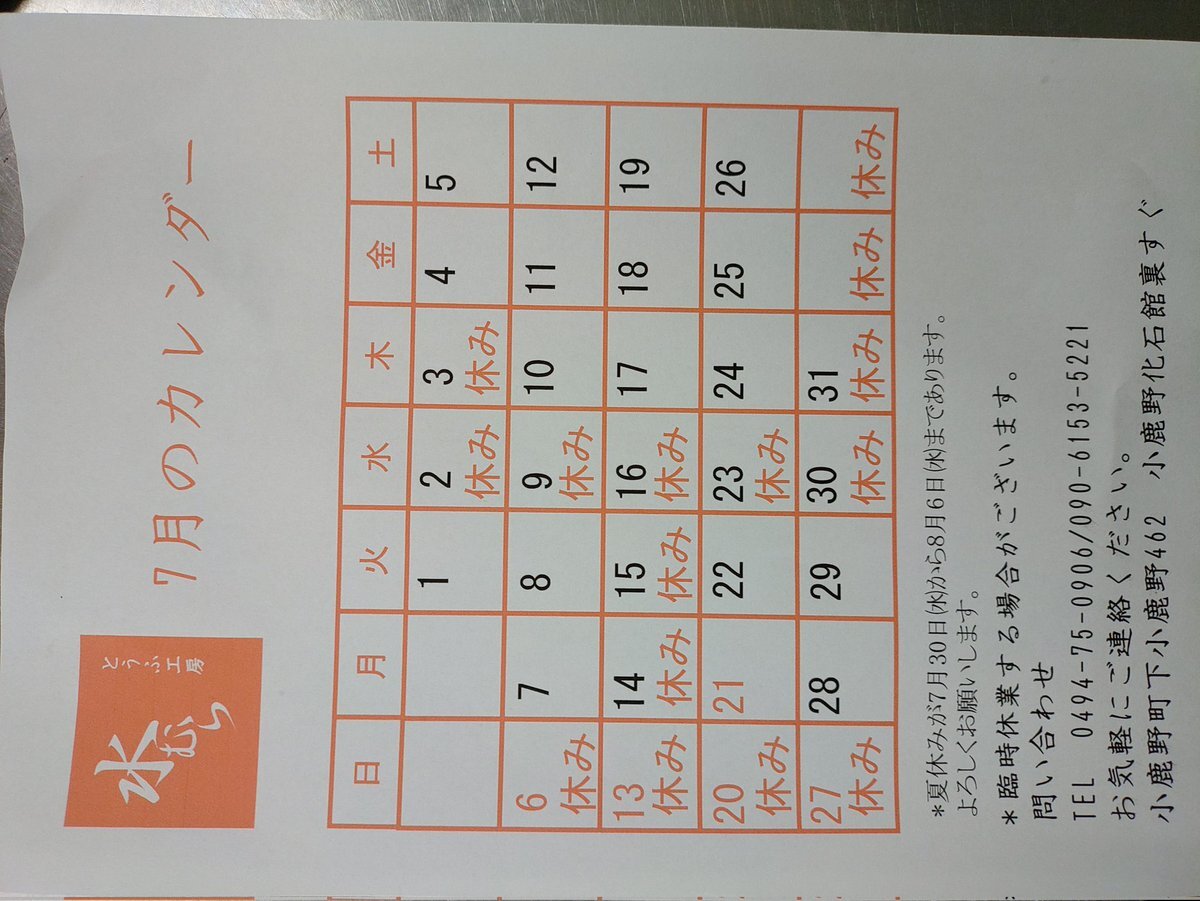 とうふ工房
水むら
7月のカレンダー
日 月 火 水 木 金 土
1 2 3 4 5
休み 休み
6 7 8 9 10 11 12
休み 休み
13 14 15 16 17 18 19
休み 休み 休み 休み
20 21 22 23 24 25 26
休み 休み
27 28 29 30 31
休み 休み 休み 休み 休み
*夏休みが7月30日(水)から8月6日(水)まであります。
よろしくお願いします。
*臨時休業する場合がございます。
問い合わせ
TEL 0494-75-0906/090-6153-5221
お気軽にご連絡ください。
小鹿野町下小鹿野462 小鹿野化石館裏すぐ